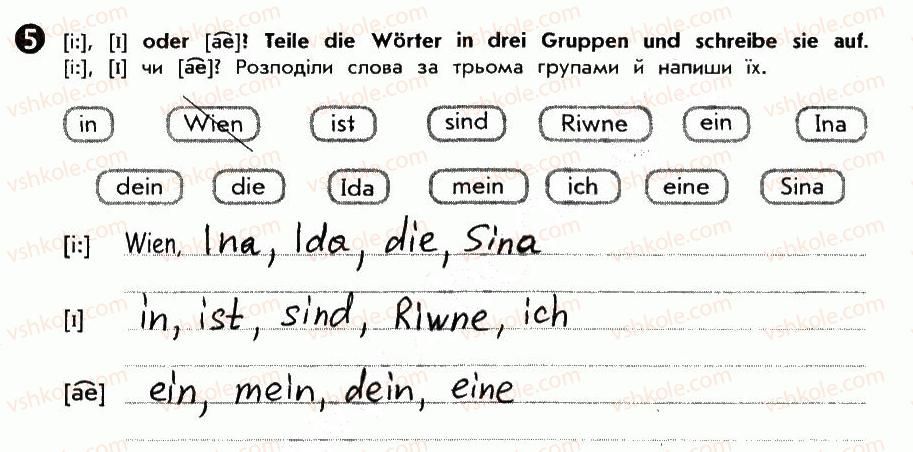 5 [i:], [ɪ] oder [a͡e]? Teile die Wörter in drei Gruppen und schreibe sie auf.
[i:], [ɪ] чи [a͡e]? Розподіли слова за трьома групами й напиши їх.
in Wien ist sind Riwne ein Ina
dein die Ida mein ich eine Sina
[i:] Wien, Ina, Ida, die, Sina
[ɪ] in, ist, sind, Riwne, ich
[a͡e] ein, mein, dein, eine
vshkole.com